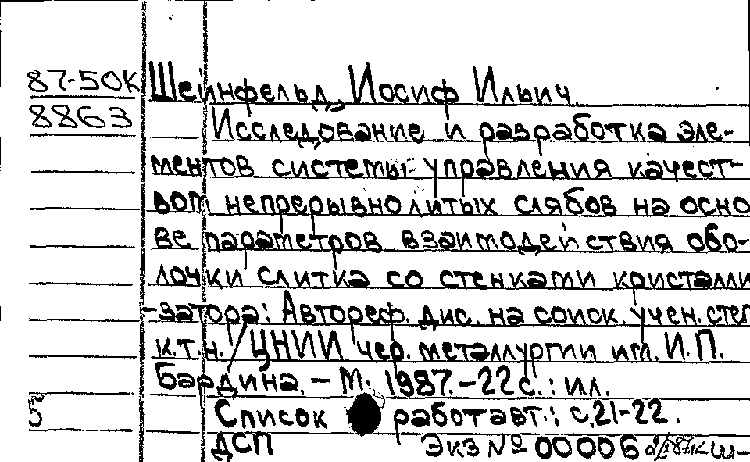 87-50К Шейнфельд, Иосиф Ильич.
8863 Исследование и разработка эле-
ментов системы управления качест-
вом непрерывнолитых слябов на осно
ве параметров взаимодействия обо-
лочки слитка со стенками кристалли
-затора: Автореф. дис. на соиск. учен. степ
к.т.н. / ЦНИИ чер. металлургии им. И.П.
Бардина. – М. 1987. – 22 с. : ил.
5 Список работ авт.: с. 21-22.
ДСП Экз № 00006